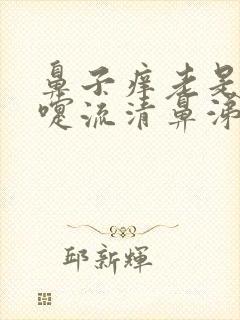 鼻子痒老是
嚏流清鼻涕
邱新輝